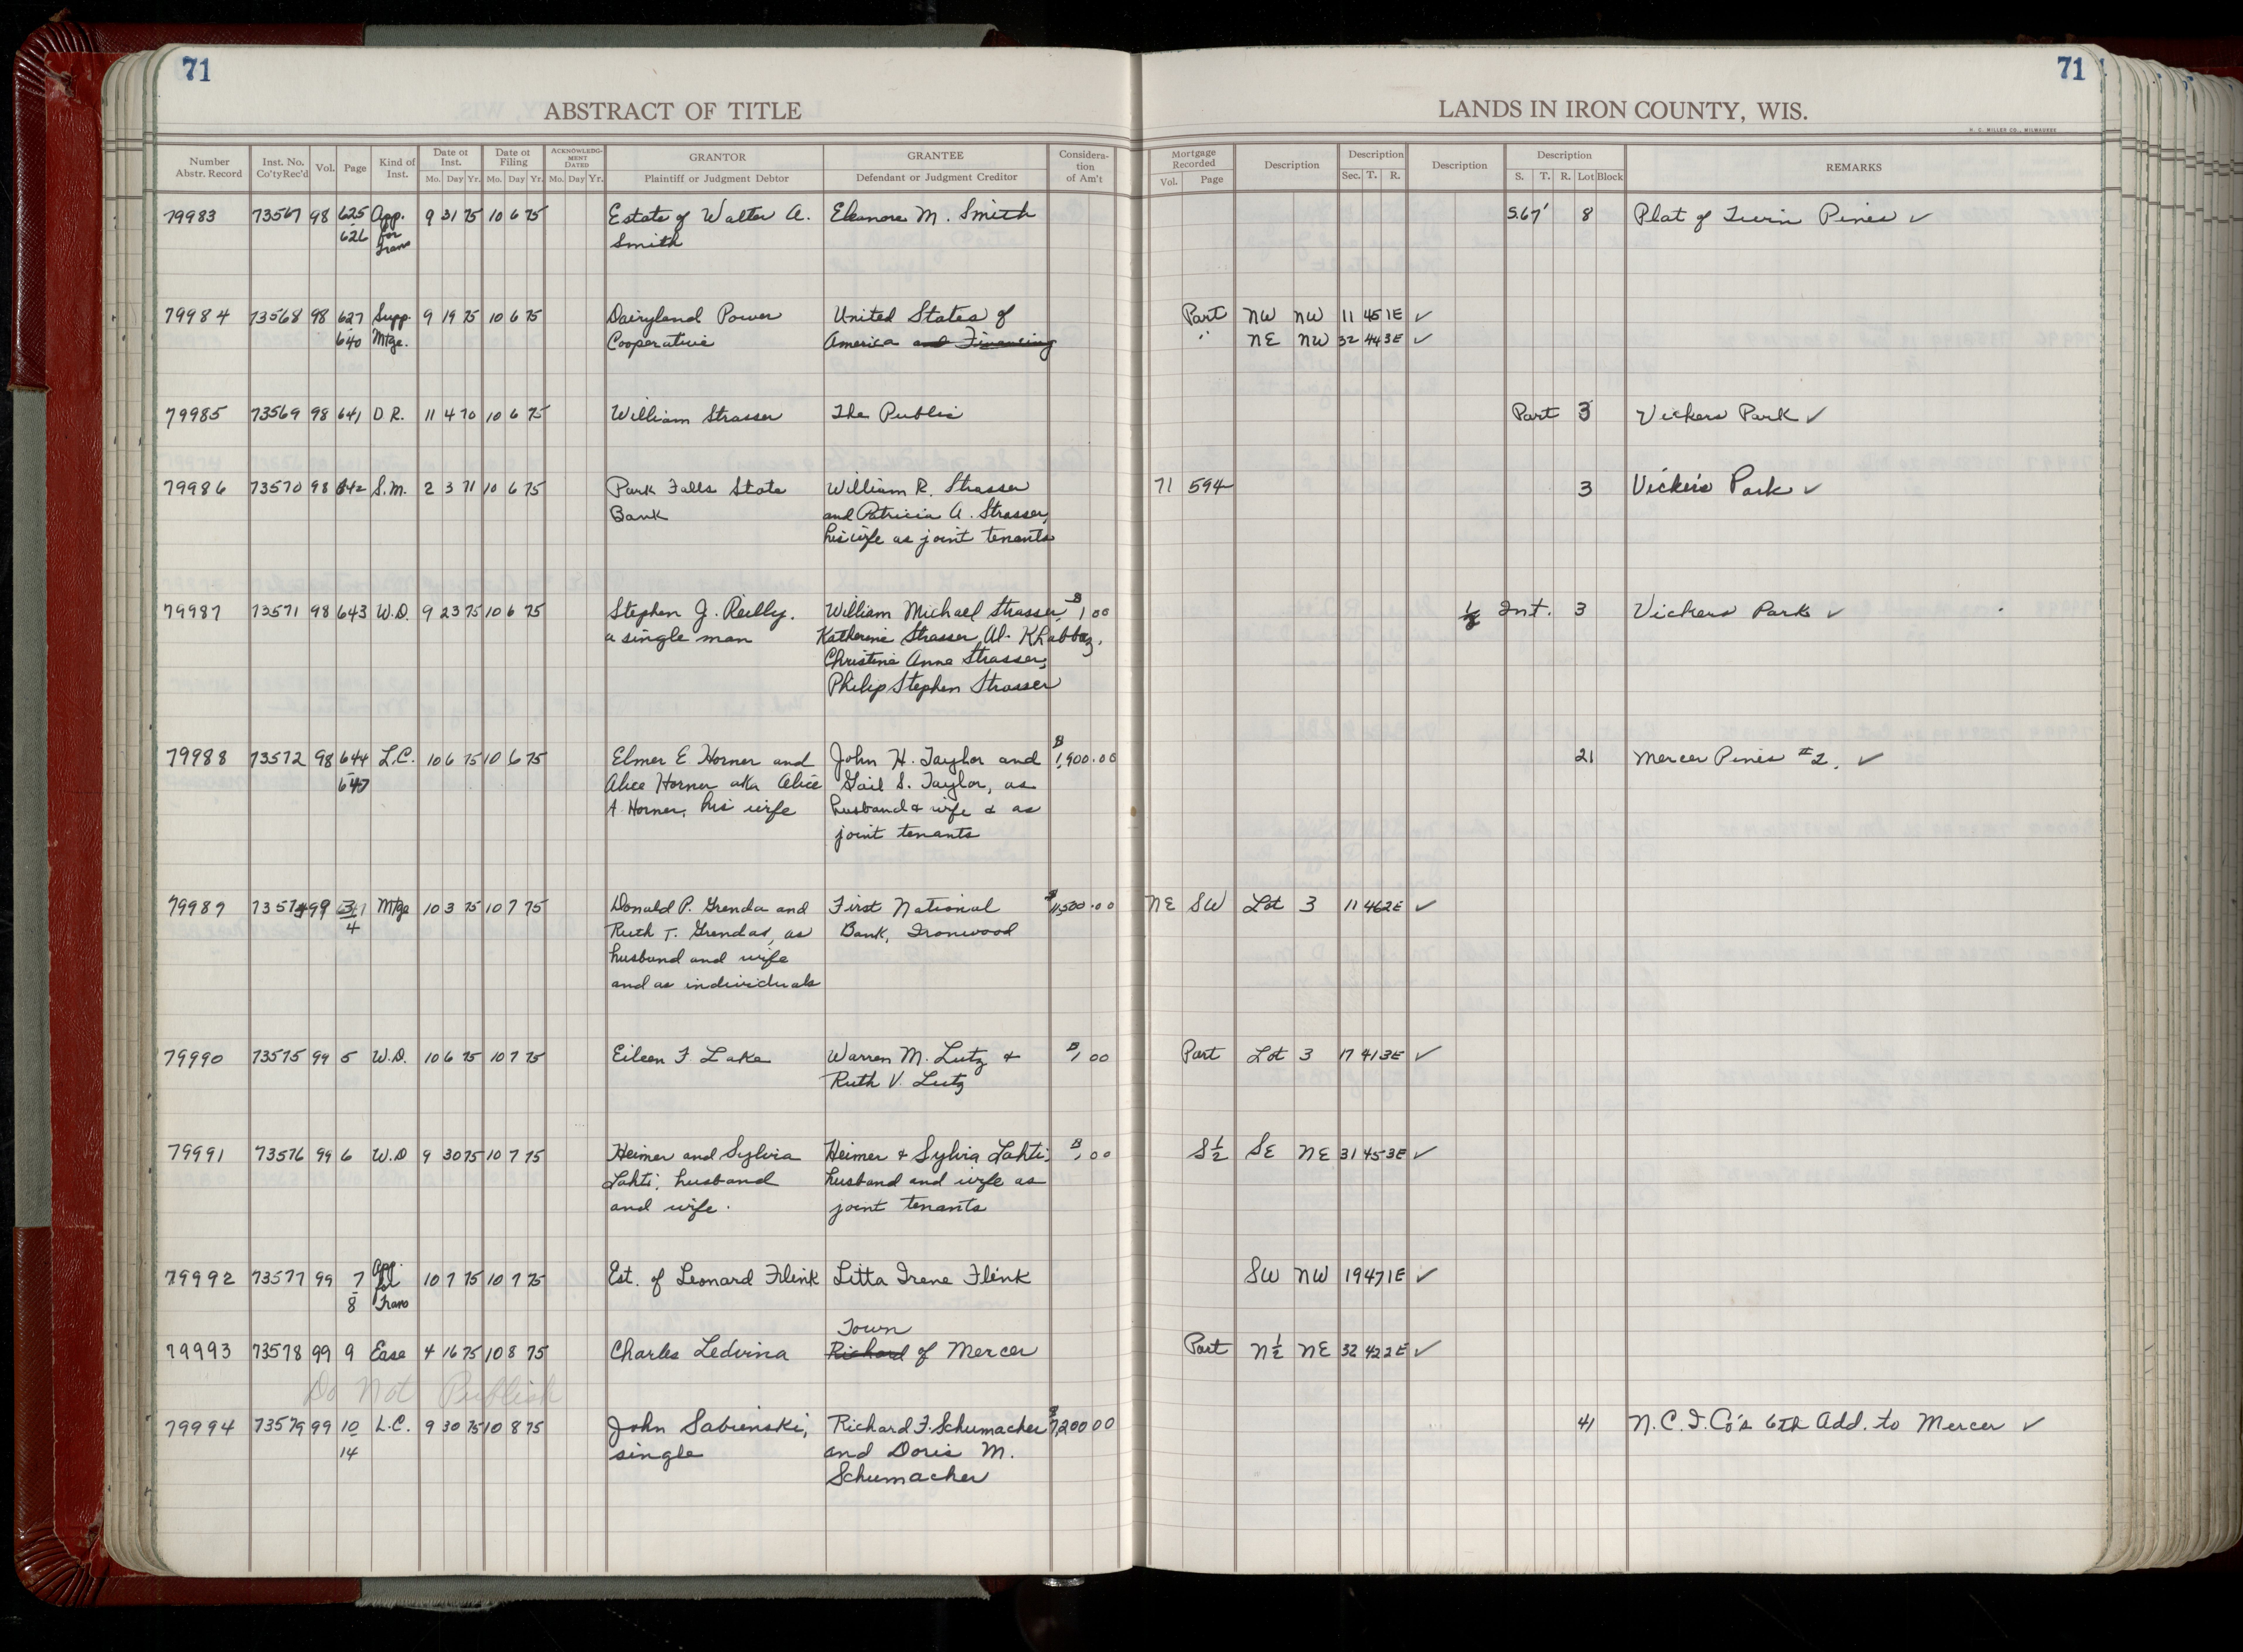 71
71
ABSTRACT OF TITLE
LANDS IN IRON COUNTY, WIS.
H. C. MILLER CO., MILWAUKEE
Number Abstr. Record Inst. No. Co'ty Rec'd Vol. Page Kind of Inst. Date of Inst. Mo. Day Yr. Date of Filing Mo. Day Yr. ACKNOWLEDGMENT DATED Mo. Day Yr. GRANTOR Plaintiff or Judgment Debtor GRANTEE Defendant or Judgment Creditor Consideration of Am't Mortgage Recorded Vol. Page Description Description Sec. T. R. Description Description S. T. R. Lot Block REMARKS
79983 73567 98 625 App. 9 31 75 10 6 75 Estate of Walter A. Eleanore M. Smith S.67' 8 Plat of Twin Pines ✓
626 for Trans Smith
79984 73568 98 627 Supp. 9 19 75 10 6 75 Dairyland Power United States of Part NW NW 11 45 1E ✓
640 Mtge. Cooperative America and Financing " NE NW 32 44 3E ✓
79985 73569 98 641 D R. 11 4 70 10 6 75 William Strasser The Public Part 3 Vickers Park ✓
79986 73570 98 642 S.M. 2 3 71 10 6 75 Park Falls State William R. Strasser 71 594 3 Vickers Park ✓
Bank and Patricia A. Strasser,
his wife as joint tenants
79987 73571 98 643 W.D. 9 23 75 10 6 75 Stephen J. Reilly, William Michael Strasser, $1 00 Int. 3 Vickers Park ✓
a single man Katherine Strasser Al-Khabbaz,
Christine Anna Strasser,
Philip Stephen Strasser
79988 73572 98 644 L.C. 10 6 75 10 6 75 Elmer E Horner and John H. Taylor and $1,900.00 21 Mercer Pines #2. ✓
647 Alice Horner aka Alice Gail S. Taylor, as
A. Horner, his wife husband & wife & as
joint tenants
79989 73574 99 Mtge 10 3 75 10 7 75 Donald P. Grenda and First National $11,500.00 NE SW Lot 3 11 46 2E ✓
4 Ruth T. Grendas, as Bank, Ironwood
husband and wife
and as individuals
79990 73575 99 5 W.D. 10 6 75 10 7 75 Eileen F. Lake Warren M. Lutz & $1 00 Part Lot 3 17 41 3E ✓
Ruth V. Lutz
79991 73576 99 6 W.D 9 30 75 10 7 75 Heimer and Sylvia Heimer & Sylvia Lahti, $1.00 S½ SE NE 31 45 3E ✓
Lahti, husband husband and wife as
and wife. joint tenants
79992 73577 99 7 App. for 10 7 75 10 7 75 Est. of Leonard Flink Litta Irene Flink SW NW 19 47 1E ✓
8 Trans
Town
79993 73578 99 9 Ease 4 16 75 10 8 75 Charles Ledvina Richard of Mercer Part N½ NE 32 42 2E ✓
Do Not Publish
79994 73579 99 10 L.C. 9 30 75 10 8 75 John Sabienski, Richard F. Schumacher $7,200 00 41 N.C.I.Co's 6th Add. to Mercer ✓
14 single and Doris M.
Schumacher